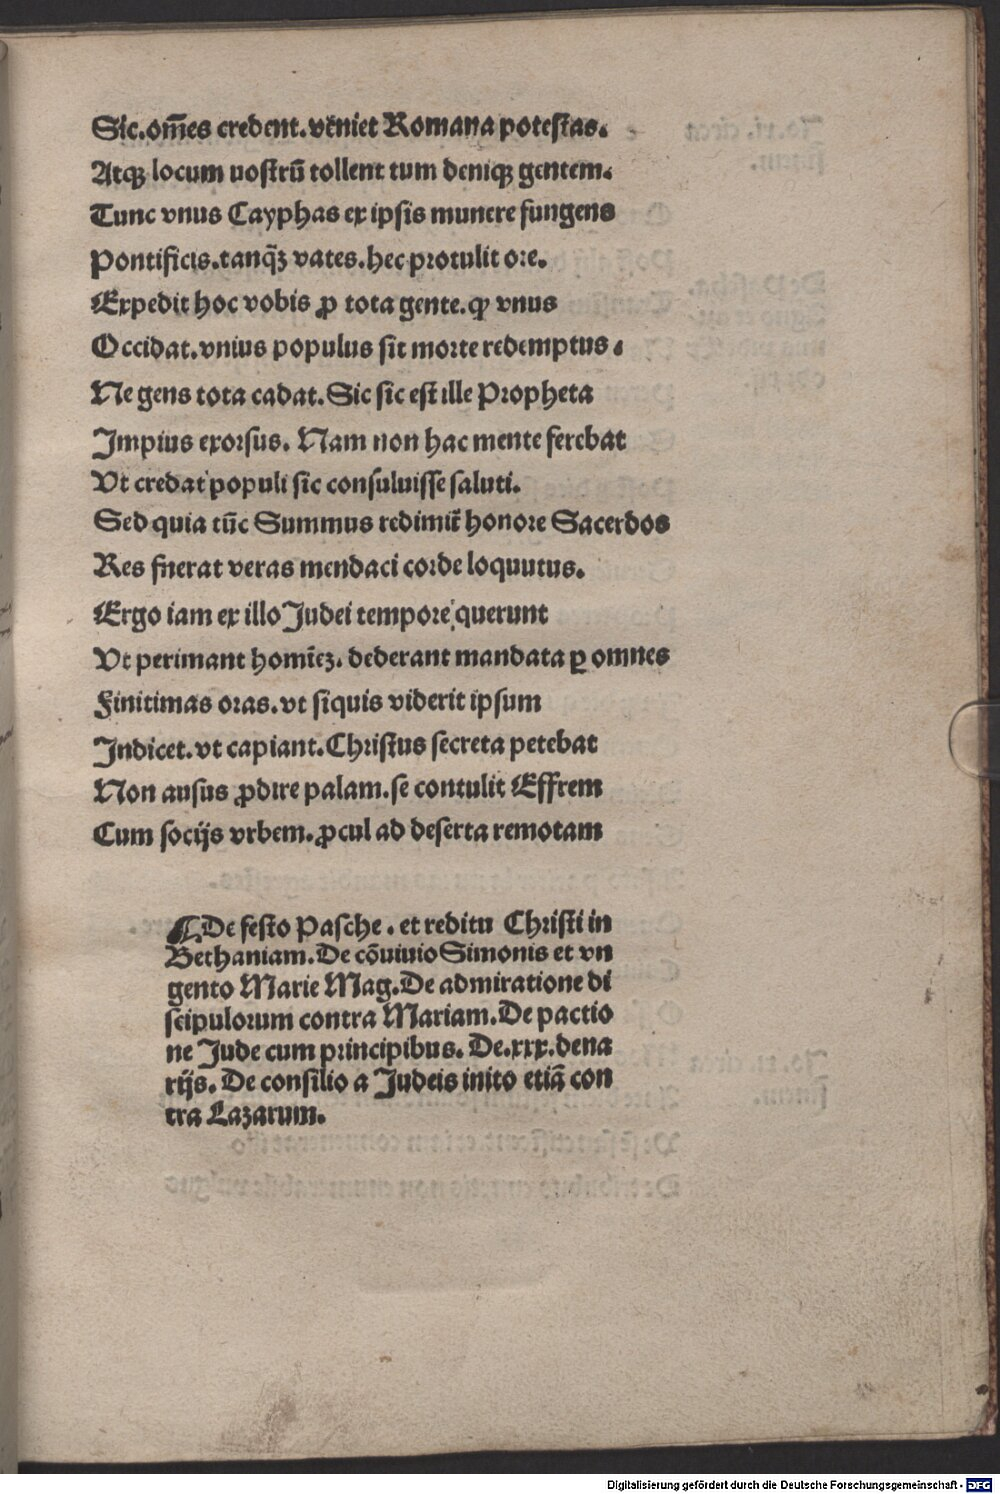 Sic.om̄es credent.vēniet Romana potestas.
Atqꝫ locum nostrū tollent tum deniqꝫ gentem.
Tunc vnus Cayphas ex ipsis munere fungens
Pontificis.tanq̄ꝫ vates.hec protulit ore.
Expedit hoc vobis ꝓ tota gente.ꝙ vnus
Occidat.vnius populus sit morte redemptus.
Ne gens tota cadat.Sic sic est ille Propheta
Impius exorsus. Nam non hac mente ferebat
Vt credat populi sic consuluisse saluti.
Sed quia tūc Summus redimit᷑ honore Sacerdos
Res fuerat veras mendaci corde loquutus.
Ergo iam ex illo Judei tempore querunt
Vt perimant homīeꝫ. dederant mandata ꝑ omnes
Finitimas oras.vt siquis viderit ipsum
Indicet.vt capiant.Christus secreta petebat
Non ausus ꝓdire palam.se contulit Effrem
Cum socijs vrbem.ꝓcul ad deserta remotam
¶ De festo Pasche. et reditu Christi in
Bethaniam.De cōuiuio Simonis et vn
gento Marie Mag.De admiratione di
scipulorum contra Mariam.De pactio
ne Jude cum principibus. De.xxx.dena
rijs. De consilio a Judeis inito etiā con
tra Lazarum.
Digitalisierung gefördert durch die Deutsche Forschungsgemeinschaft - DFG